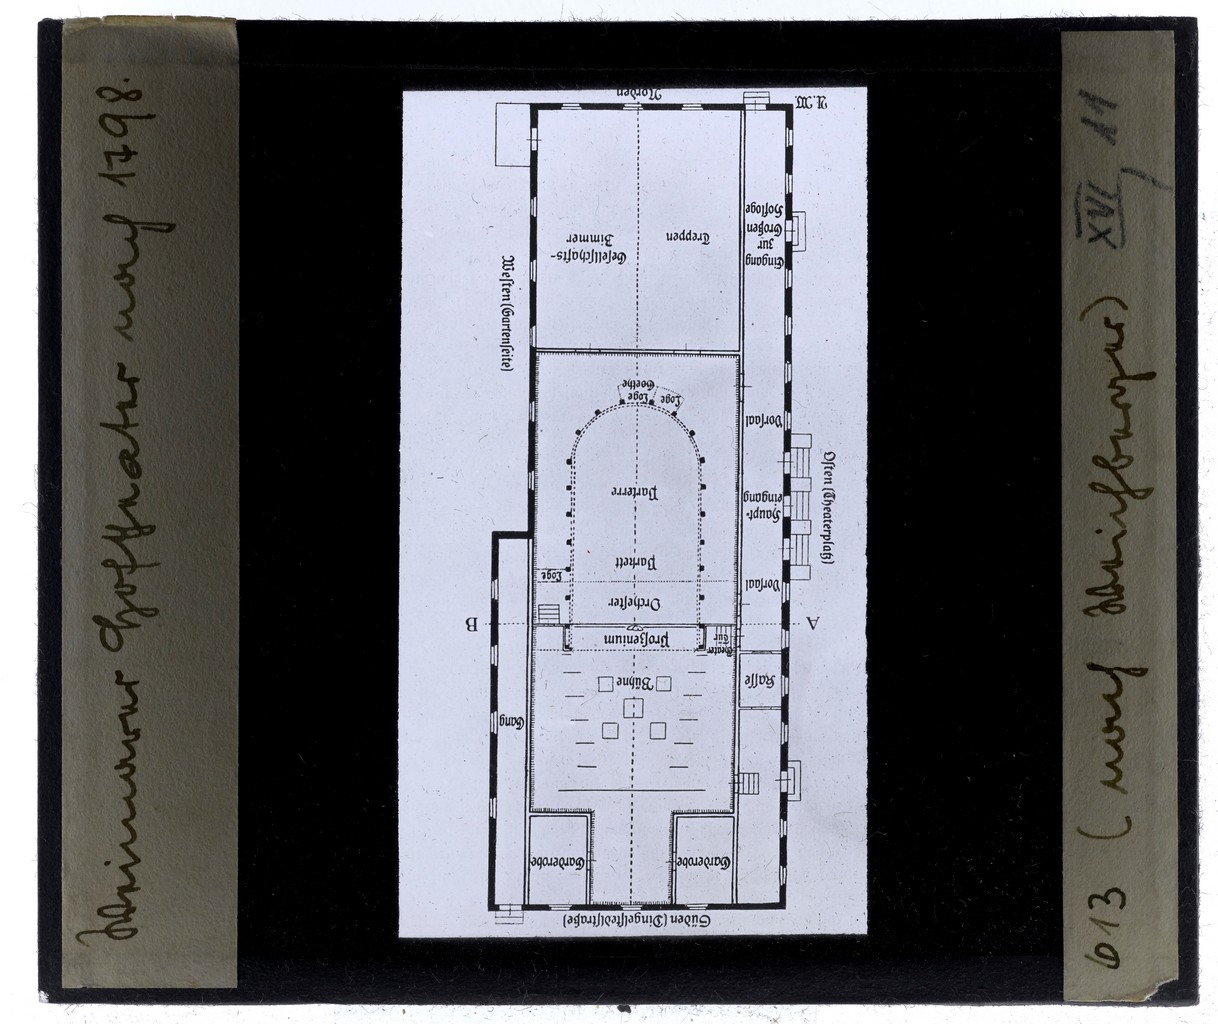 Weimarer Hoftheater nach 1798.
Norden
A. W.
Eingang
zur
Großen
Hofloge
Treppen
Gesellschafts-
Zimmer
Westen (Gartenseite)
Goethe
Loge
Loge
Vorsaal
Parterre
Haupt-
eingang
Osten (Theaterplatz)
Parkett
Loge
Orchester
Vorsaal
A
B
Proszenium
Zur
Theater
Bühne
Kasse
Gang
Garderobe
Garderobe
Süden (Dingelstedtstraße)
613 (nach Weichberger) XVI, 11